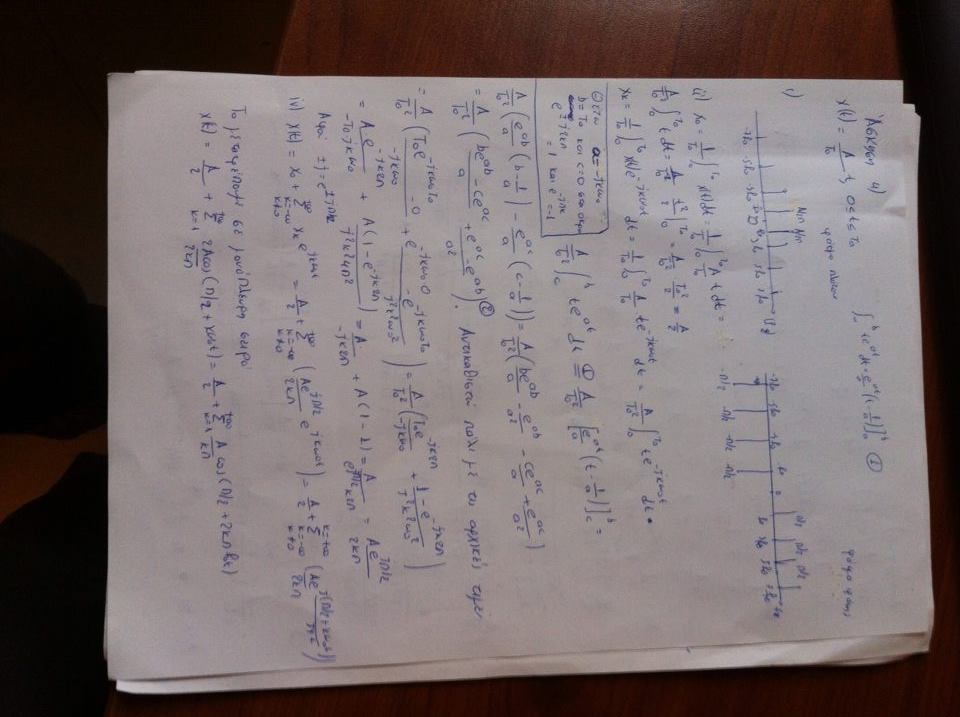 Άσκηση 4)
∫_a^b te^{at} dt = e^{at}/a (t - 1/a)]_a^b ①
x(t) = A/T₀ t, 0≤t≤T₀
φάσμα πλάτους
φάσμα φάσης
i)
-π/2 -π/2 -π/2 -π/2
ii) X₀ = 1/T₀ ∫_0^{T₀} x(t)dt = 1/T₀ ∫_0^{T₀} A/T₀ t dt =
A/T₀² ∫_0^{T₀} t dt = A/T₀² t²/2 |_0^{T₀} = A/T₀² T₀²/2 = A/2
X_k = 1/T₀ ∫_0^{T₀} x(t)e^{-jkω₀t} dt = 1/T₀ ∫_0^{T₀} A/T₀ te^{-jkω₀t} dt = A/T₀² ∫_0^{T₀} te^{-jkω₀t} dt
Θέτω a = -jkω₀
b = T₀ και c=0 στα άκρα
e^{-j2kπ} = 1 και e^{-jπk} = -1
A/T₀² ∫_c^b te^{at} dt ①= A/T₀² [e^{at}/a (t - 1/a)]_c^b =
A/T₀² (e^{ab}/a (b - 1/a) - e^{ac}/a (c - 1/a)) = A/T₀² (be^{ab}/a - e^{ab}/a² - ce^{ac}/a + e^{ac}/a²)
= A/T₀² ((be^{ab} - ce^{ac})/a + (e^{ac} - e^{ab})/a²) ②. Αντικαθιστώ πάλι με τις αρχικές τιμές
= A/T₀² ((T₀e^{-jkω₀T₀} - 0)/(-jkω₀) + (e^{-jkω₀0} - e^{-jkω₀T₀})/(j²k²ω₀²)) = A/T₀² (T₀e^{-jk2π}/(-jkω₀) + (1 - e^{-jk2π})/(j²k²ω₀²))
= A·e^{-jk2π}/(-T₀·jkω₀) + A(1 - e^{-jk2π})/(j²k²4π²) = A·/(-jk2π) + A(1 - 1) = A/(e^{-jπ/2}k2π) = Ae^{jπ/2}/(2kπ)
Αφού ±j = e^{±jπ/2}
iv) x(t) = X₀ + Σ_{k=-∞, k≠0}^{+∞} X_k e^{jkω₀t} = A/2 + Σ_{k=-∞, k≠0}^{+∞} (Ae^{jπ/2}/(2kπ) e^{jkω₀t}) = A/2 + Σ_{k=-∞, k≠0}^{k=+∞} (Ae^{j(π/2 + kω₀t)}/(2πk))
Το μετατρέπουμε σε μονόπλευρη σειρά
x(t) = A/2 + Σ_{k=1}^{+∞} 2A cos(π/2 + kω₀t)/(2kπ) = A/2 + Σ_{k=1}^{+∞} A/(kπ) cos(π/2 + 2kπf₀t)